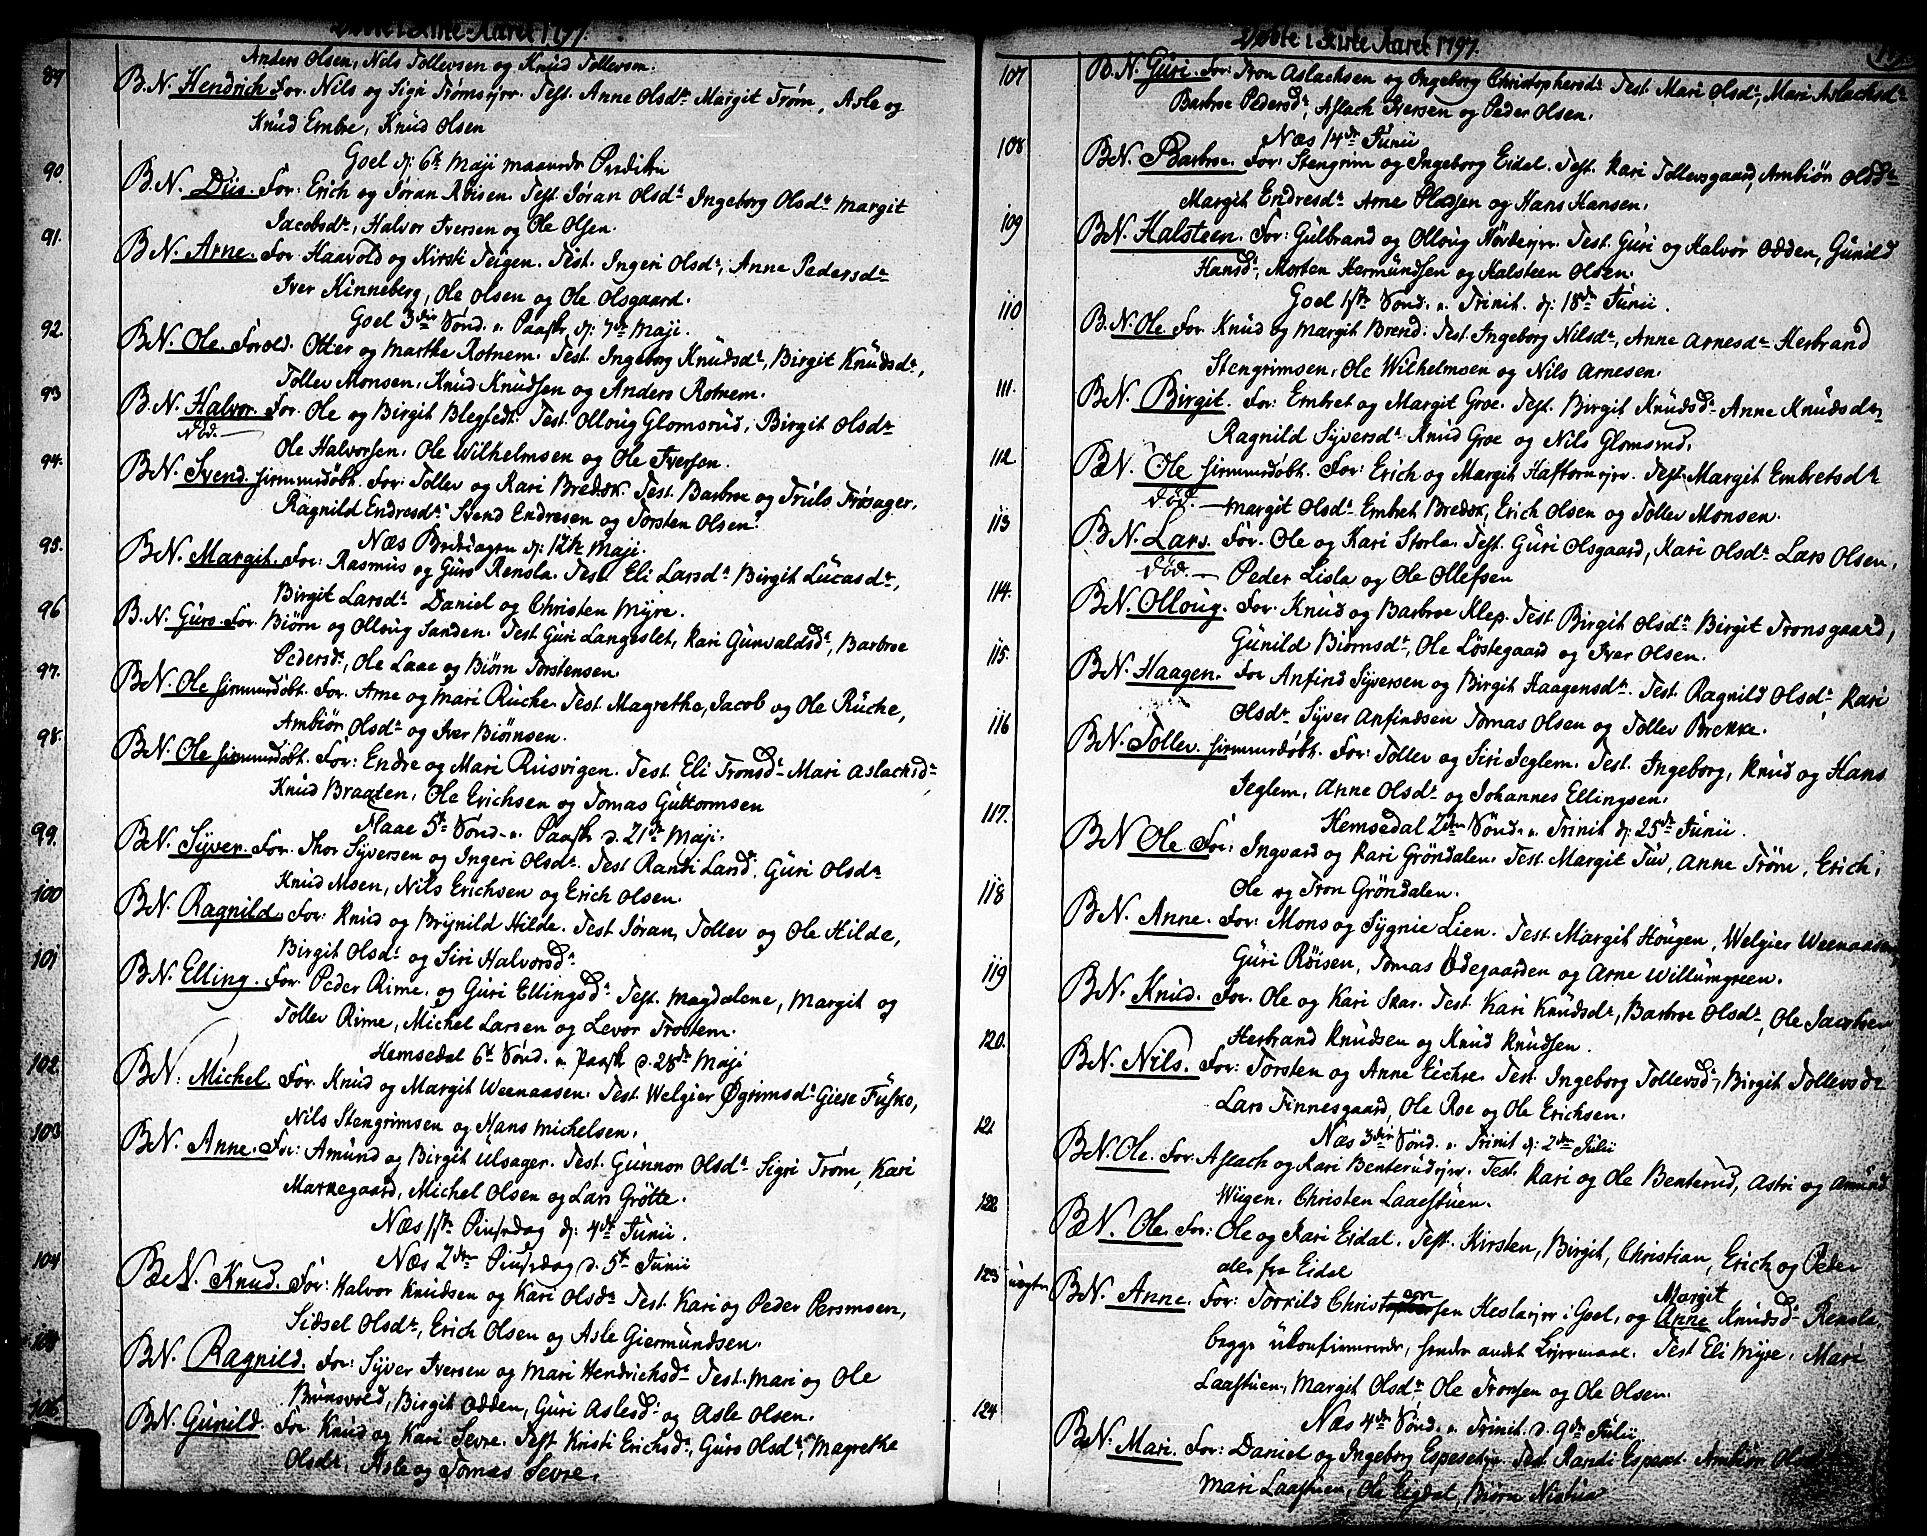 Døbte i Kirke-Aaret 1797.
Anders Olsen, Nils Tollevsen og Knud Tollevsen.
89 B.N. Hendrich For. Nils og Sigri Trømseyer. Test. Anne Olsdr Margit Trøm, Asle og
Knud Embre, Knud Olsen
Goel d: 6te Maji
90. B.N. Diis. For: Erich og Jøran Røisen. Test Jøran Olsdr Ingeborg Olsdr Margit
Jacobsdr, Halvor Iversen og Ole Olsen.
91. B.N. Arne. For Haavold og Kirsti Teigen. Test. Ingeri Olsdr, Anne Pedersdr
Iver Kinneberg, Ole Olsen og Ole Olsgaard.
Goel 3die Sønd. p. Paask d: 7de Maji.
92. B.N. Ole. Foræld. Otter og Marthe Rotnem. Test. Ingeborg Knudsdr, Birgit Knudsdr,
Tollev Monsen, Knud Knudsen og Anders Rotnem.
93 B.N. Halvor For. Ole og Birgit Test. Olloug Glomsrud, Birgit Olsdr
Død. Ole Halvorsen, Ole Wilhelmsen og Ole Iversen.
94. B.N. Svend hjemmedøbt. For: Tollev og Kari Bredok. Test. Barbroe og Truls Trøsager,
Ragnild Endresdr Svend Endresen og Torsten Olsen.
Næs Bededagen d: 12te Maji.
95. B.N. Margit. For: Rasmus og Guro Rensla. Test Eli Larsdr Birgit Lucasdr,
Birgit Larsdr Daniel og Christen Myre.
96 B.N. Guro. For. Biørn og Olloug Sanden. Test Guri Langeslet, Kari Gunvaldsdr, Barbroe
Pedersdr, Ole Laae og Biørn Torstensen.
97. B.N. Ole hjemmedøbt. For. Arne og Mari Ruche. Test Magrethe, Jacob og Ole Ruche,
Ambiør Olsdr og Iver Biørnsen.
98. B.N. Ole hjemmedøbt. For: Endre og Mari Rusvigen. Test. Eli Tronsdr Mari Aslachsdr,
Knud Braaten, Ole Erichsen og Tomas Guttormsen
Flaae 5te Sønd. p. Paask d. 21de Maji.
99. B.N. Syver. For. Thor Syversen og Ingeri Olsdr. Test Randi Land, Guri Olsdr
Knud Nilsen, Nils Erichsen og Erich Olsen.
100 B.N. Ragnild. For: Knud og Brynild Hilde. Test Jøran, Tollev og Ole Hilde,
Birgit Olsdr og Siri Halvorsdr
101 B.N. Elling. For. Peder Rime og Guri Ellingsdr Test. Magdalene, Margit og
Tollev Rime, Michel Larsen og Levor Trostem.
Hemsedal 6te Sønd. p Paask d. 28de Maji
102. B.N: Michel. For. Knud og Margit Weenaasen. Test Welgier Øgrimsdr Giese Fusko,
Nils Stengrimsen og Hans Michelsen.
103 B.N. Anne. For: Amund og Birgit Ulsager. Test. Gunnor Olsdr Sigri Trøm, Kari
Markegaard, Michel Olsen og Lars Grøtte.
Næs 1ste Pinsedag d: 4de Junii.
Næs 2den Pinsedag d. 5te Junii
104 B.N. Knud. For: Halvor Knudsen og Kari Olsdr Test. Kari og Peder Persmsen,
Sidsel Olsdr, Erich Olsen og Asle Giermundsen.
105 B.N. Ragnild. For: Syver Iversen og Mari Hendrichsdr Test. Mari og Ole
Bunsvold, Birgit Odden, Guri Aslesdr og Asle Olsen.
106 B.N. Gunild. For Knud og Kari Sevre. Test Kristi Erichsdr, Guro Olsdr, Magrethe
Olsdr, Asle og Tomas Sevre.
Døbte i Kirke Aaret 1797.
107 B.N. Guri. For: Tron Aslachsen og Ingeborg Christophersdr Test Mari Olsdr, Mari Aslachsdr
Barbroe Pedersdr, Aslach Iversen og Peder Olsen.
Næs 14de Junii
108 B.N. Barbroe. For: Stengrim og Ingeborg Eidal. Test. Kari Tollevsgaard, Ambiør Olsdr
Margit Endresdr Arne Pladsen og Hans Hansen.
109 B.N. Halsteen. For: Gulbrand og Olloug Test. Guri og Halvor Odden, Gunild
Hansdr, Morten Hermundsen og Halsteen Olsen.
Goel 1ste Sønd. p. Trinit. d: 18de Junii.
110 B.N. Ole For Knud og Margit Brend: Test. Ingeborg Nilsdr, Anne Arnesdr Herbrand
Stengrimsen, Ole Wilhelmsen og Nils Arnesen.
111. B.N. Birgit. For: Embret og Margit Groe. Test. Birgit Knudsdr Anne Knudsdr,
Ragnild Syversdr Knud Groe og Nils Glomsrud.
112 B.N. Ole hjemmedøbt. For: Erich og Margit Haftorneyer. Test. Margit Embretsdr
Død. Margit Olsdr Embret Bredok, Erich Olsen og Tollev Monsen.
113 B.N. Lars. For. Ole og Kari Storla. Test. Guri Olsgaard, Kari Olsdr Lars Olsen,
Død. Peder Lisla og Ole Ollefsen
114. B.N. Olloug. For: Knud og Barbroe Klep. Test Birgit Olsdr Birgit Tronsgaard,
Gunild Biørnsdr, Ole Løstegaard og Iver Olsen.
115. B.N. Haagen. For Anfind Syversen og Birgit Haagensdr. Test. Ragnild Olsdr, Kari
Olsdr Syver Anfindsen Tomas Olsen og Tollev Brekke.
116 B.N. Tollev. hjemmedøbt. For: Tollev og Siri Jeglem. Test. Ingeborg, Knud og Hans
Jeglem, Anne Olsdr og Johannes Ellingsen.
Hemsedal 2den Sønd. p. Trinit d: 25de Junii.
117. B.N Ole For: Ingvard og Kari Grøndalen. Test. Margit Tuv, Anne Trøm, Erich,
Ole og Tron Grøndalen.
118 B.N. Anne. For: Mons og Sygnie Lien. Test. Margit Hougen, Welgier Weenaasen,
Guri Røisen, Tomas Ødegaarden og Arne Willumgreen.
119 B.N. Knud. For. Ole og Kari Skar. Test. Kari Knudsdr, Barbroe Olsdr, Ole Jacobsen,
Herbrand Knudsen og Knud Knudsen.
120. B.N. Nils. For: Torsten og Anne Eichre. Test. Ingeborg Tollevsdr, Birgit Tollevsdr
Lars Finnesgaard, Ole Roe og Ole Erichsen.
Næs 3die Sønd. p. Trinit d: 2den Julii
121 B.N. Ole. For. Aslach og Kari Benterudeyer. Test. Kari og Ole Benterud, Astri og Amund
Wiigen, Christen Laaestuen.
122 B.N. Ole. For: Ole og Kari Eidal. Test. Kirsten, Birgit, Christian, Erich og Peder
alle fra Eidal
123 uægte B.N. Anne. For: Torkild Christensen Heslaeyer i Goel, og Margit Knudsdr Rensla,
begge ukonfirmerede, hendes andet Leiermaal. Test Eli Myre, Mari
Laastuen, Margit Olsdr Ole Tronsen og Ole Olsen.
Næs 4de Sønd. p. Trinit. d. 9de Julii.
124 B.N: Mari. For: Daniel og Ingeborg Espeseteye. Test. Randi Espeset Ambiør Olsdr
Mari Laastuen, Ole Eigdal, Biørn